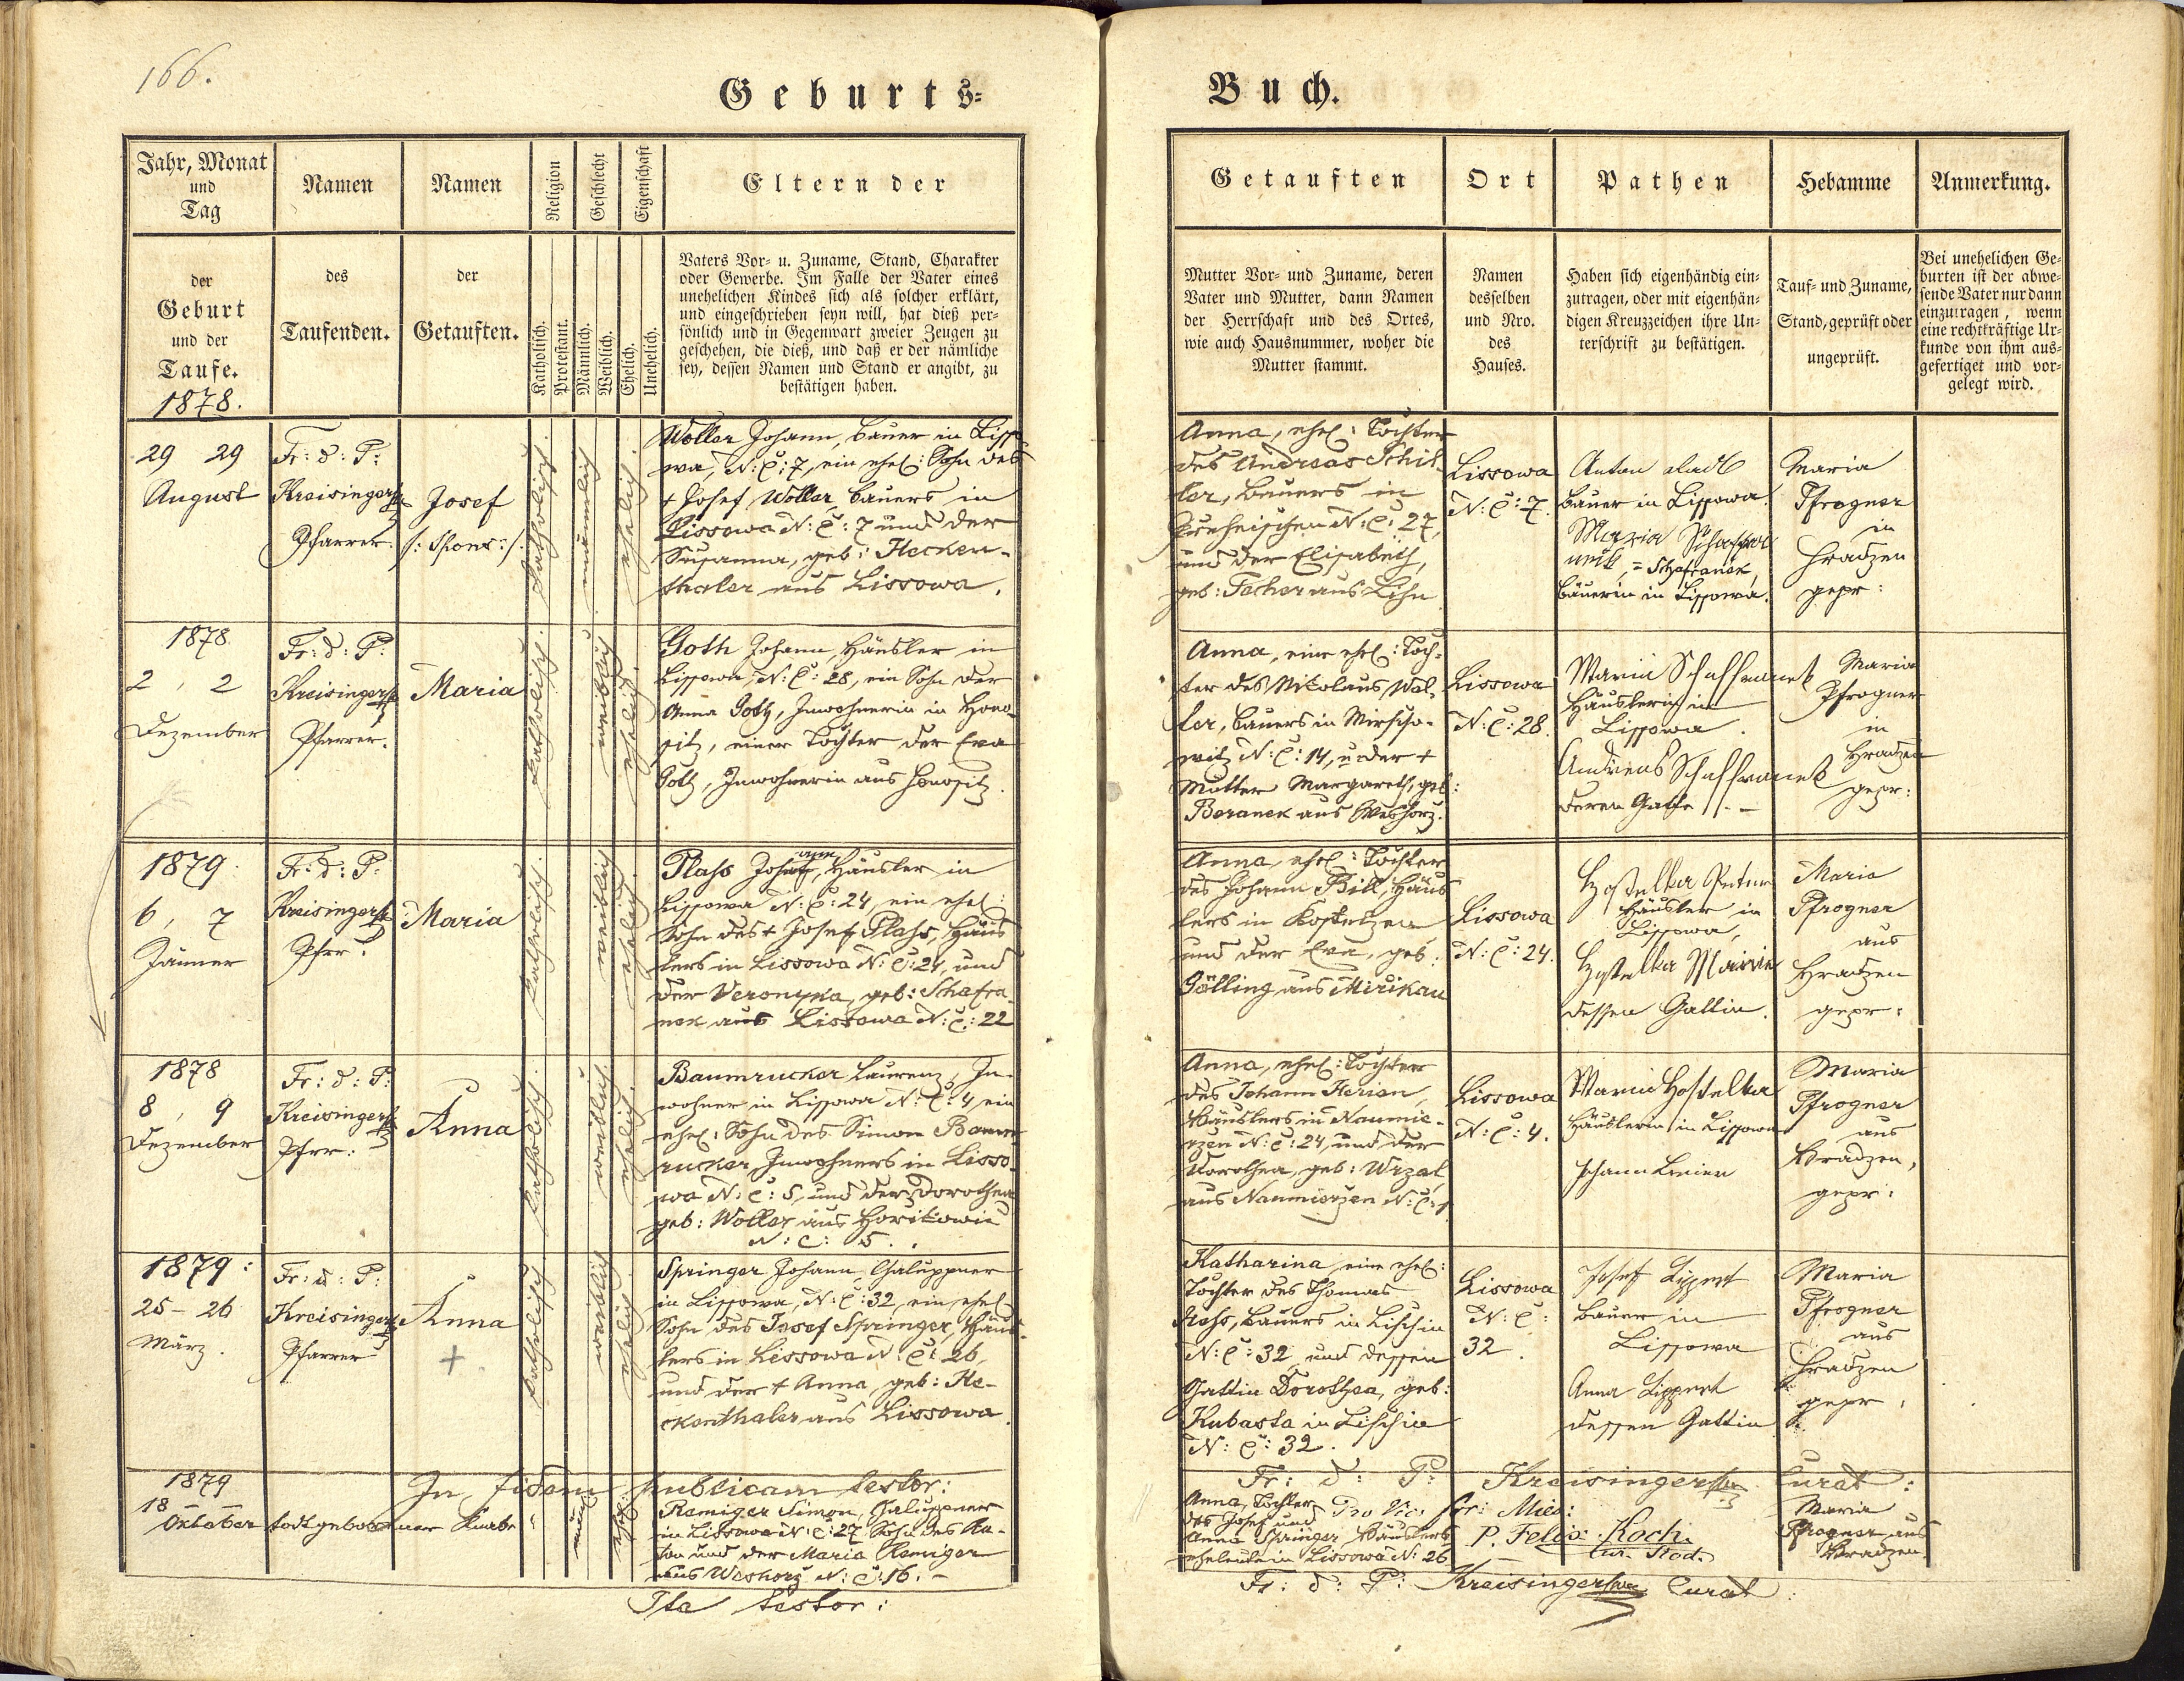 166.
Geburts-
Buch.
Jahr, Monat
und
Tag
der
Geburt
und der
Taufe.
1878.
Namen
des
Taufenden.
Namen
der
Getauften.
Religion
Katholisch.
Protestant.
Geschlecht
Männlich.
Weiblich.
Eigenschaft
Ehelich.
Unehelich.
Eltern der
Vaters Vor- u. Zuname, Stand, Charakter
oder Gewerbe. Im Falle der Vater eines
unehelichen Kindes sich als solcher erklärt,
und eingeschrieben seyn will, hat dieß per-
sönlich und in Gegenwart zweier Zeugen zu
geschehen, die dieß, und daß er der nämliche
sey, dessen Namen und Stand er angibt, zu
bestätigen haben.
Getauften
Mutter Vor- und Zuname, deren
Vater und Mutter, dann Namen
der Herrschaft und des Ortes,
wie auch Hausnummer, woher die
Mutter stammt.
Ort
Namen
desselben
und Nro.
des
Hauses.
Pathen
Haben sich eigenhändig ein-
zutragen, oder mit eigenhän-
digen Kreuzzeichen ihre Un-
terschrift zu bestätigen.
Hebamme
Tauf- und Zuname,
Stand, geprüft oder
ungeprüft.
Anmerkung.
Bei unehelichen Ge-
burten ist der abwe-
sende Vater nur dann
einzutragen, wenn
eine rechtkräftige Ur-
kunde von ihm aus-
gefertiget und vor-
gelegt wird.
29 29
August
Fr: d: P:
Kreisinger
Pfarrer.
Josef
katholisch.
männlich
ehelich.
Woller Johann, Bauer in Lisso-
wa, N: C: 7, ein ehel: Sohn des
+ Josef Woller, Bauers in
Lissowa N: C: 7 und der
Susanna, geb: Hecken-
thaler aus Lissowa.
Anna, ehel: Tochter
des Andreas Schil-
ler, Bauers in
N: C: 27,
und der Elisabeth,
geb: Techer aus Lihn
Lissowa
N: C: 7.
Anton
Bauer in Lissowa.
Maria
= Schafranek,
Bäuerin in Lissowa.
Maria
Pfrogner
in
Hradzen
gepr:
1878
2, 2
Dezember
Fr: d: P:
Kreisinger
Pfarrer.
Maria
katholisch.
weiblich
ehelich.
Goth Johann, Häusler in
Lissowa, N: C: 28, ein Sohn der
Anna Goth, Inwohnerin in Hono-
sitz, einer Tochter der Eva
Goth, Inwohnerin aus Honositz.
Anna, eine ehel: Toch-
ter des Nikolaus Wol-
ler, Bauers in Mirscho-
witz N: C: 14, u. der +
Mutter Margareth, geb:
Beranek aus Weshorz.
Lissowa
N: C: 28.
Maria Schaffranek
Häuslerin in
Lissowa.
Andreas Schaffranek
deren Gatte
Maria
Pfrogner
in
Hradzen
gepr:
1879.
6, 7
Jänner
Fr: d: P:
Kreisinger
Pfrr:
Maria
katholisch.
weiblich
ehelich
Plahs Johann, Häusler in
Lissowa N: C: 24, ein ehel:
Sohn des + Josef Plahs, Häus
lers in Lissowa N: C: 24, und
der Veronyka, geb: Schafra-
nek aus Lissowa N: C: 22
Anna, ehel: Tochter
des Johann Bill, Häus
lers in Kostelzen
und der Eva, geb:
Gölling aus Mirikau
Lissowa
N: C: 24.
Hostelka Anton
Häusler in
Lissowa,
Hostelka Maria
dessen Gattin.
Maria
Pfrogner
aus
Hradzen
gepr:
1878
8, 9
Dezember
Fr: d: P:
Kreisinger
Pfrr:
Anna
katholisch.
weiblich
ehelich.
Baumrucker Laurenz, In-
wohner in Lissowa N: C: 4, ein
ehel: Sohn des Simon Baum-
rucker, Inwohners in Lisso-
wa N: C: 5, und der Dorothea
geb: Woller aus Horikowic
N: C: 5.
Anna, ehel: Tochter
des Johann Herian,
Häuslers in Naumie-
rzen N: C: 24, und der
Dorothea, geb: Wrzal,
aus Naumierzen N: C: 1
Lissowa
N: C: 4.
Maria Hostelka
Häuslerin in Lissowa
Maria
Pfrogner
aus
Hradzen,
gepr:
1879:
25 – 26
März.
Fr: d: P:
Kreisinger
Pfarrer
Anna
+
katholisch.
weiblich
ehelich.
Springer Johann, Chaluppner
in Lissowa, N: C: 32, ein ehel:
Sohn des Josef Springer, Häus-
lers in Lissowa N: C: 26,
und der + Anna, geb: He-
ckenthaler aus Lissowa.
Katharina, eine ehel:
Tochter des Thomas
Bauers in Lischin
N: C: 32, und dessen
Gattin Dorothea, geb:
Kubasta in Lischin
N: C: 32.
Lissowa
N: C:
32.
Josef Lippert
Bauer in
Lissowa
Anna Lippert
dessen Gattin
Maria
Pfrogner
aus
Hradzen
gepr:
In fidem publicam testor:
Fr: d: P: Kreisinger Curat:
1879
18
Oktober
todtgeborener Knabe
männl:
ehel:
Remiger Simon, Chaluppner
in Lissowa N: C: 27, Sohn des An-
ton und der Maria Remiger
aus Weshorz N: C: 16. –
Anna, Tochter
des Josef und
Anna Springer Häuslers
eheleute in Lissowa N: 26
Pro Vic: for: Mies:
P. Felix Koch.
Maria
Pfrogner aus
Hradzen.
Ita testor:
Fr: d: P: Kreisinger Curat: